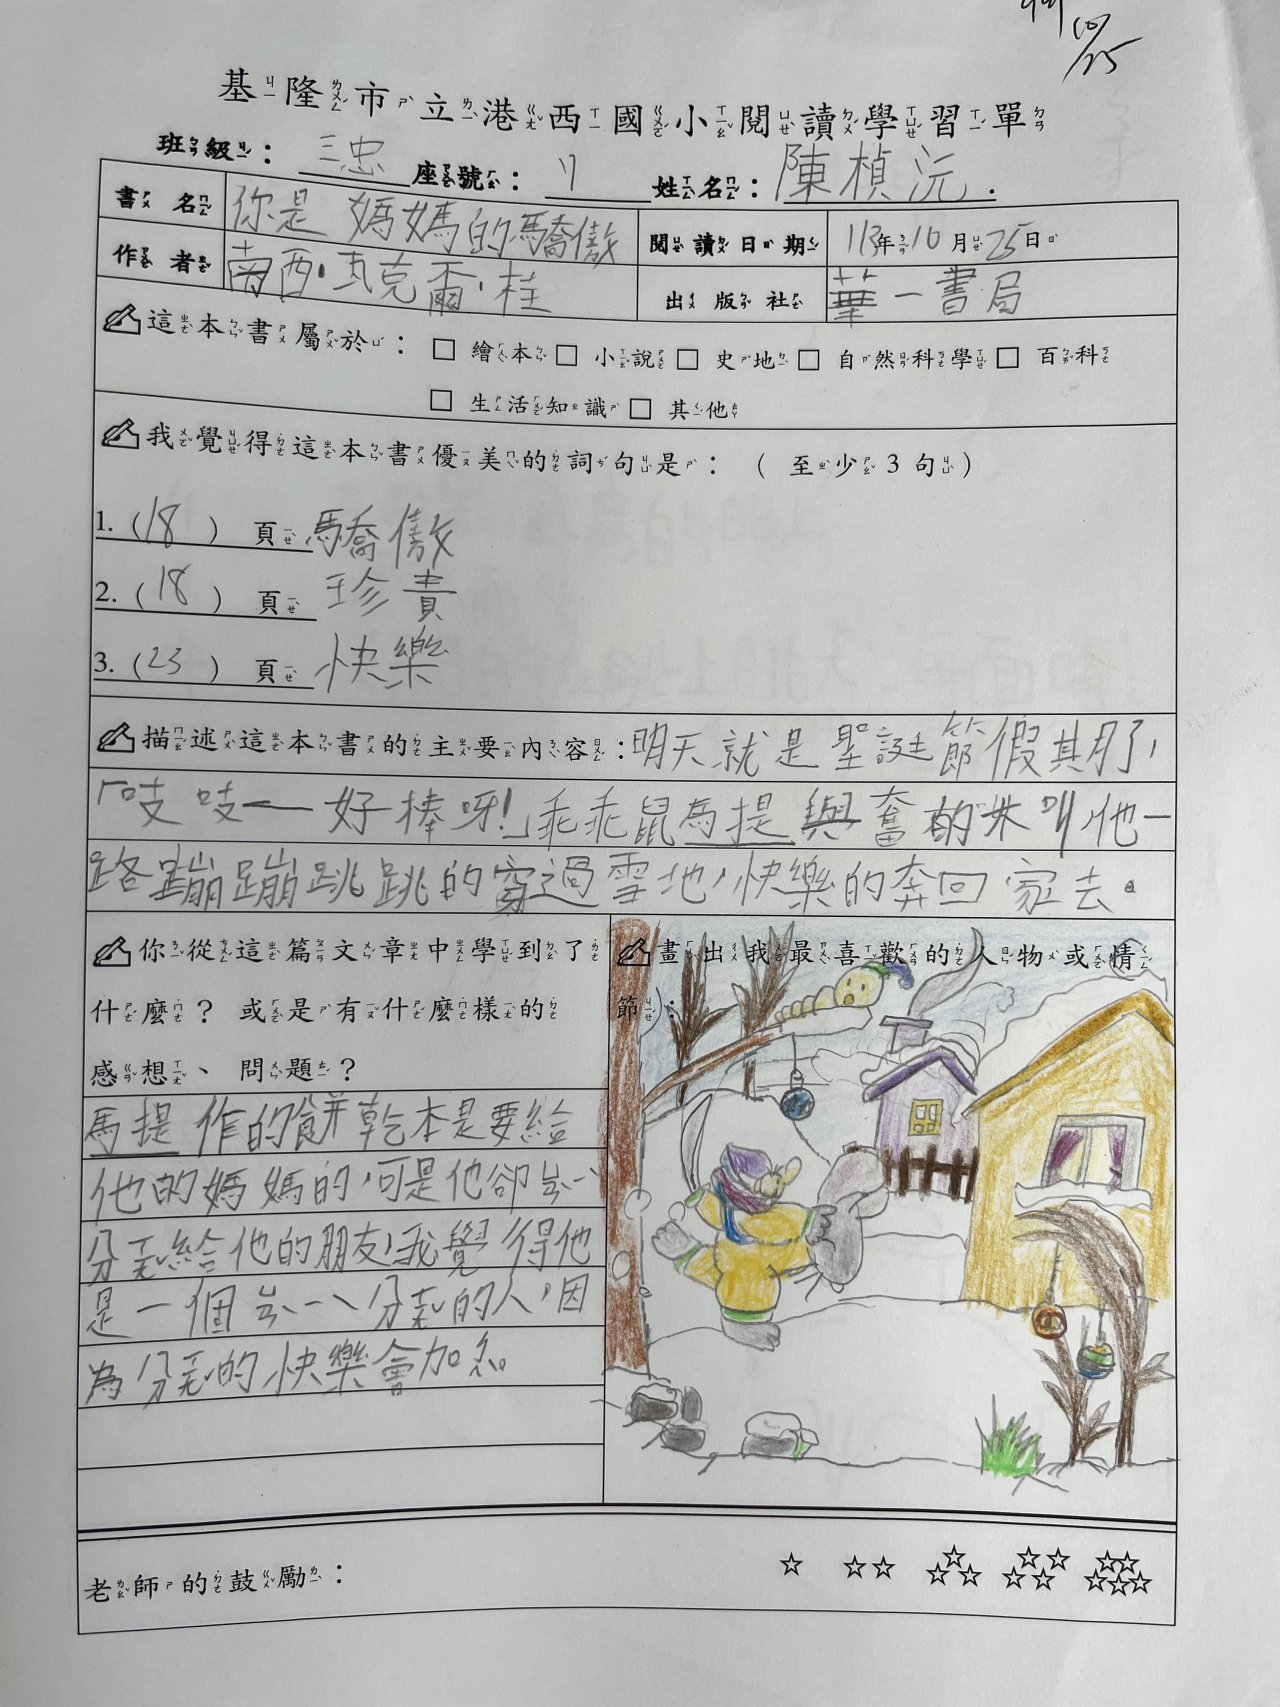 10/25
基隆市立港西國小閱讀學習單
班級：三忠 座號：7 姓名：陳楨沅.
書名 你是媽媽的驕傲 閱讀日期 113年10月25日
作者 南西·瓦克爾·桂 出版社 華一書局
這本書屬於：□繪本□小說□史地□自然科學□百科
□生活知識□其他
我覺得這本書優美的詞句是：（至少3句）
1.（18）頁 驕傲
2.（18）頁 珍貴
3.（23）頁 快樂
描述這本書的主要內容：明天就是聖誕節假期了，
「吱吱——好棒呀！」乖乖鼠馬提與奮的妹叫他一
路蹦蹦跳跳的穿過雪地，快樂的奔回家去。
你從這篇文章中學到了
什麼？或是有什麼樣的
感想、問題？
馬提作的餅乾本是要給
他的媽媽的，可是他卻ㄎㄞˋ
分享給他的朋友，我覺得他
是一個ㄎㄞˋ分享的人，因
為分享的快樂會加
畫出我最喜歡的人物或情
節：
老師的鼓勵： ☆ ☆☆ ☆☆☆ ☆☆☆☆ ☆☆☆☆☆